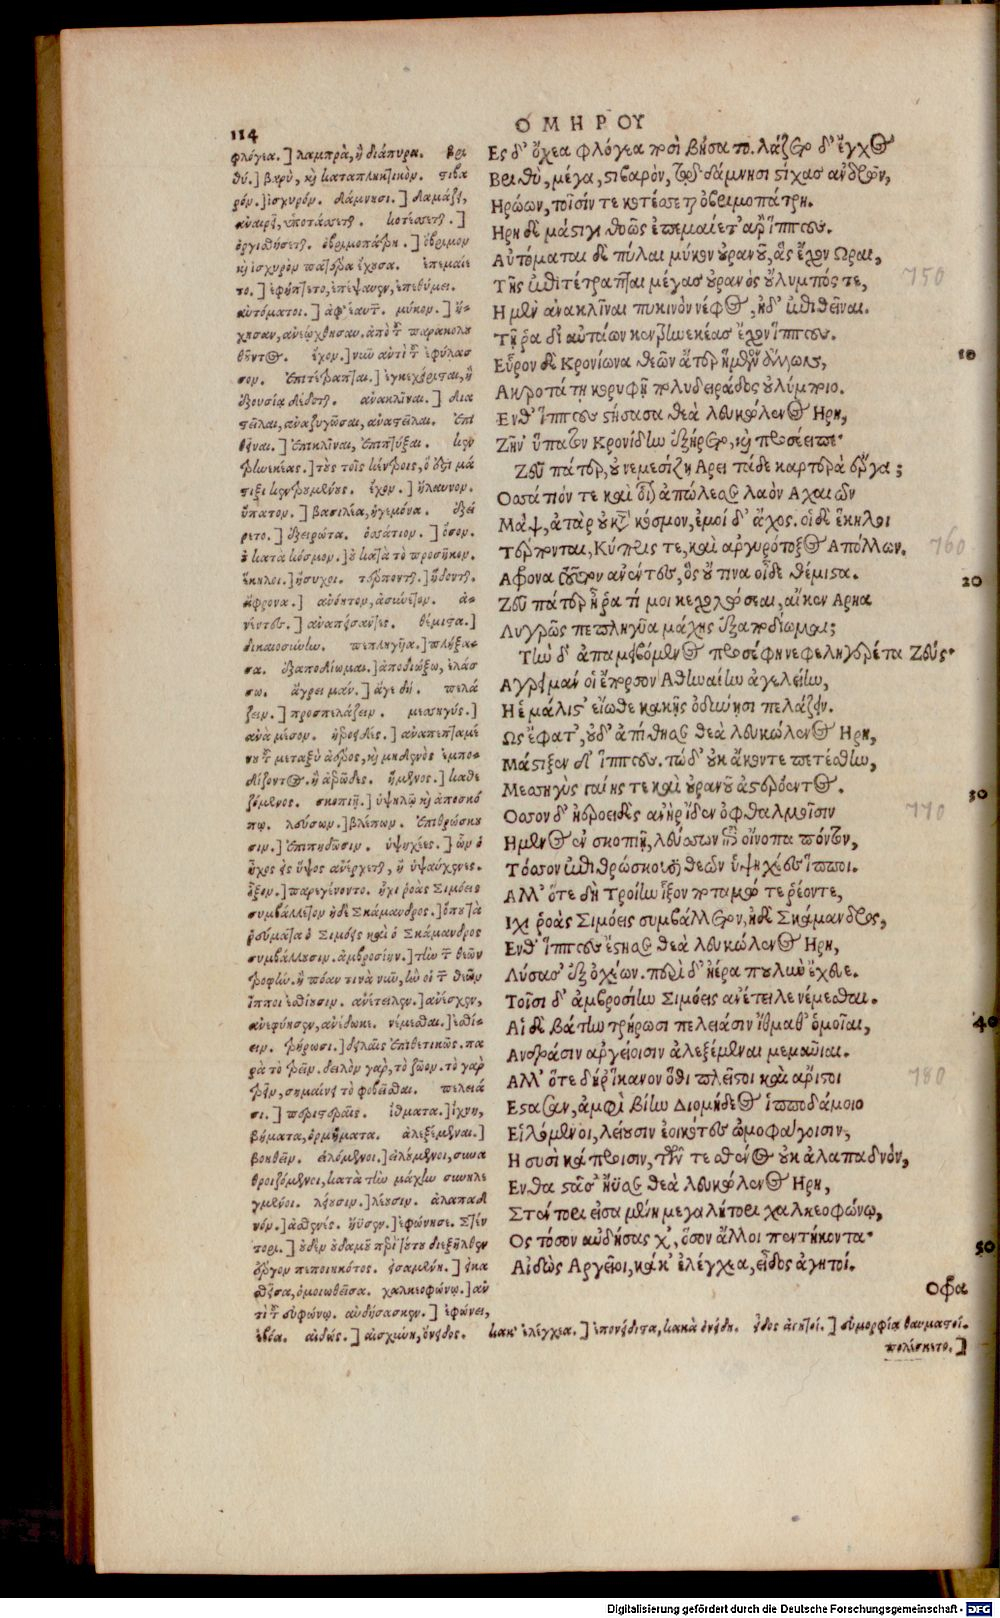 114
ΟΜΗΡΟΥ
φλόγεα.] λαμπρὰ, ἢ διάπυρα. βρι
θύ.] βαρὺ, καὶ καταπληκτικόν. στιβα
ρόν.] ἰσχυρόν. δάμνησι.] δαμάζει,
ὀργισθήσεται. ὀβριμοπάτρη.] ὄβριμον
καὶ ἰσχυρὸν πατέρα ἔχουσα. ἐπεμαίε
αὐτόματοι.] ἀφ' ἑαυτῶν. μύκον.] ἤ-
θοῦντος. ἔχον.] νῦν ἀντὶ τοῦ ἐφύλασ
σον. ἐπιτέτραπται.] ἐγκεχείρισται, ἢ
ἐξουσία δέδοται. ἀνακλῖναι.] δια
θεῖναι.] ἐπικλῖναι, ἐπιπτύξαι. κεν
τρηνεκέας.] τοὺς τοῖς κέντροις, ὅ ἐστι μά
στιξι κεντρουμένους. ἔχον.] ἤλαυνον.
ὕπατον.] βασιλέα, ἡγεμόνα. ἐξεί
ρετο.] ἐξειρώτα. ὁσσάτιον.] ὅσον.
οὐ κατὰ κόσμον.] οὐ κατὰ τὸ προσῆκον.
ἕκηλοι.] ἥσυχοι. τέρπονται.] ἥδονται.
ἄφρονα.] ἀνόητον, ἀσύνετον. ἀ-
νέντες.] ἀναπείσαντες. θέμιστα.]
δικαιοσύνην. πεπληγυῖα.] πλήξα-
σα. ἐξαποδίωμαι.] ἀποδιώξω, ἐλάσ
σω. ἄγρει μάν.] ἄγε δή. πελά
ζειν.] προσπελάζειν. μεσσηγύς.]
ἀνὰ μέσον. ἠεροειδές.] ἀναπεπταμέ
νου τοῦ μεταξὺ ἀέρος, καὶ μηδενὸς ἐμπο-
δίζοντος. ἢ ἀερῶδες. ἥμενος.] καθε
ζόμενος. σκοπιῇ.] ὑψηλῷ καὶ ἀποσκό
πῳ. λεύσσων.] βλέπων. ἐπιθρώσκου
σιν.] ἐπιπηδῶσιν. ὑψηχέες.] ὧν ὁ
ἦχος εἰς ὕψος ἀνέρχεται, ἢ ὑψαύχενες.
ἷξον.] παρεγένοντο. ἧχι ῥοὰς Σιμόεις
συμβάλλετον ἠδὲ Σκάμανδρος.] ὅπου τὰ
ῥεύματα ὁ Σιμόεις καὶ ὁ Σκάμανδρος
συμβάλλουσιν. ἀμβροσίην.] τὴν τῶν θεῶν
τροφήν. ἢ πόαν τινὰ νῦν, ἣν οἱ τῶν θεῶν
ἵπποι ἐσθίουσιν. ἀνέτειλεν.] ἀνέσχεν,
ἀνεφύησεν, ἀνέδωκε. νέμεσθαι.] ἐσθί-
ειν. τρήρωσι.] δειλαῖς ἐπιθετικῶς. πα
ρὰ τὸ τρεῖν. δειλὸν γὰρ, τὸ ζῶον. τὸ γὰρ
τρεῖν, σημαίνει τὸ φοβεῖσθαι. πελειά
σι.] περιστεραῖς. ἴθματα.] ἴχνη,
βήματα, ὁρμήματα. ἀλεξέμεναι.]
βοηθεῖν. εἰλόμενοι.] εἱλούμενοι, συνα
θροιζόμενοι, κατὰ τὴν μάχην συνηλε
γμένοι. λείουσιν.] λέουσιν. ἀλαπαδ
νόν.] ἀσθενές. ἤϋσεν.] ἐφώνησε. Στέν
ἔργον πεποιηκότος. εἰσαμένη.] εἰκα
σθεῖσα, ὁμοιωθεῖσα. χαλκεοφώνῳ.] ἀν
τὶ τοῦ εὐφώνῳ. αὐδήσασκεν.] ἐφώνει,
ἐβόα. αἰδώς.] αἰσχύνη, ὄνειδος. κακ' ἐλέγχεα.] ἐπονείδιστα, κακὰ ὀνείδη. εἶδος ἀγητοί.] εὐμορφίᾳ θαυμαστοί.
πολέσκετο.]
Ες δ' ὄχεα φλόγεα ποσὶ βήσατο. λάζετο δ' ἔγχος
Βριθὺ, μέγα, στιβαρὸν, τῷ δάμνησι στίχας ἀνδρῶν,
Ηρώων, τοῖσίν τε κοτέσσεται ὀβριμοπάτρη.
Ηρη δὲ μάστιγι θοῶς ἐπεμαίετ' ἄρ' ἵππους.
Αὐτόμαται δὲ πύλαι μύκον οὐρανοῦ, ἃς ἔχον Ωραι,
Τῆς ἐπιτέτραπται μέγας οὐρανὸς οὔλυμπός τε,
Η μὲν ἀνακλῖναι πυκινὸν νέφος, ἠδ' ἐπιθεῖναι.
Τῇ ῥα δι' αὐτάων κεντρηνεκέας ἔχον ἵππους.
Εὗρον δὲ Κρονίωνα θεῶν ἄτερ ἥμενον ἄλλων,
Ακροτάτῃ κορυφῇ πολυδειράδος οὐλύμποιο.
Ενθ' ἵππους στήσασα θεὰ λευκώλενος Ηρη,
Ζῆν' ὕπατον Κρονίδην ἐξήρετο, καὶ προσέειπε·
Ζεῦ πάτερ, οὐ νεμεσίζῃ Αρει τάδε καρτερὰ ἔργα;
Οσσάτιόν τε καὶ οἷον ἀπώλεσε λαὸν Αχαιῶν
Μάψ, ἀτὰρ οὐ κατὰ κόσμον, ἐμοὶ δ' ἄχος. οἱ δὲ ἕκηλοι
Τέρπονται, Κύπρις τε, καὶ ἀργυρότοξος Απόλλων.
Αφρονα τοῦτον ἀνέντες, ὃς οὔ τινα οἶδε θέμιστα.
Ζεῦ πάτερ ἦ ῥά τί μοι κεχολώσεαι, αἴ κεν Αρηα
Λυγρῶς πεπληγυῖα μάχης ἐξαποδίωμαι;
Τὴν δ' ἀπαμειβόμενος προσέφη νεφεληγερέτα Ζεύς·
Αγρει μάν οἱ ἔπορσον Αθηναίην ἀγελείην,
Η ἑ μάλιστ' εἴωθε κακῇς ὀδύνῃσι πελάζειν.
Ως ἔφατ', οὐδ' ἀπίθησε θεὰ λευκώλενος Ηρη,
Μάστιξεν δ' ἵππους. τὼ δ' οὐκ ἄκοντε πετέσθην,
Μεσσηγὺς γαίης τε καὶ οὐρανοῦ ἀστερόεντος.
Οσσον δ' ἠεροειδὲς ἀνὴρ ἴδεν ὀφθαλμοῖσιν
Ημενος ἐν σκοπιῇ, λεύσσων ἐπὶ οἴνοπα πόντον,
Τόσσον ἐπιθρώσκουσι θεῶν ὑψηχέες ἵπποι.
Αλλ' ὅτε δὴ Τροίην ἷξον ποταμώ τε ῥέοντε,
Ιχι ῥοὰς Σιμόεις συμβάλλετον, ἠδὲ Σκάμανδρος,
Ενθ' ἵππους ἔστησε θεὰ λευκώλενος Ηρη,
Λύσασ' ἐξ ὀχέων. περὶ δ' ἠέρα πουλὺν ἔχευε.
Τοῖσι δ' ἀμβροσίην Σιμόεις ἀνέτειλε νέμεσθαι.
Αἱ δὲ βάτην τρήρωσι πελειάσιν ἴθμαθ' ὁμοῖαι,
Ανδράσιν ἀργείοισιν ἀλεξέμεναι μεμαυῖαι.
Αλλ' ὅτε δή ῥ' ἵκανον ὅθι πλεῖστοι καὶ ἄριστοι
Εστασαν, ἀμφὶ βίην Διομήδεος ἱπποδάμοιο
Εἰλόμενοι, λείουσιν ἐοικότες ὠμοφάγοισιν,
Η συσὶ κάπροισιν, τῶν τε σθένος οὐκ ἀλαπαδνόν,
Ενθα στᾶσ' ἤϋσε θεὰ λευκώλενος Ηρη,
Στέντορι εἰσαμένη μεγαλήτορι χαλκεοφώνῳ,
Ος τόσον αὐδήσασχ', ὅσον ἄλλοι πεντήκοντα·
Αἰδὼς Αργεῖοι, κάκ' ἐλέγχεα, εἶδος ἀγητοί.
Οφρα
750
10
760
20
30
770
40
780
50
Digitalisierung gefördert durch die Deutsche Forschungsgemeinschaft - DFG